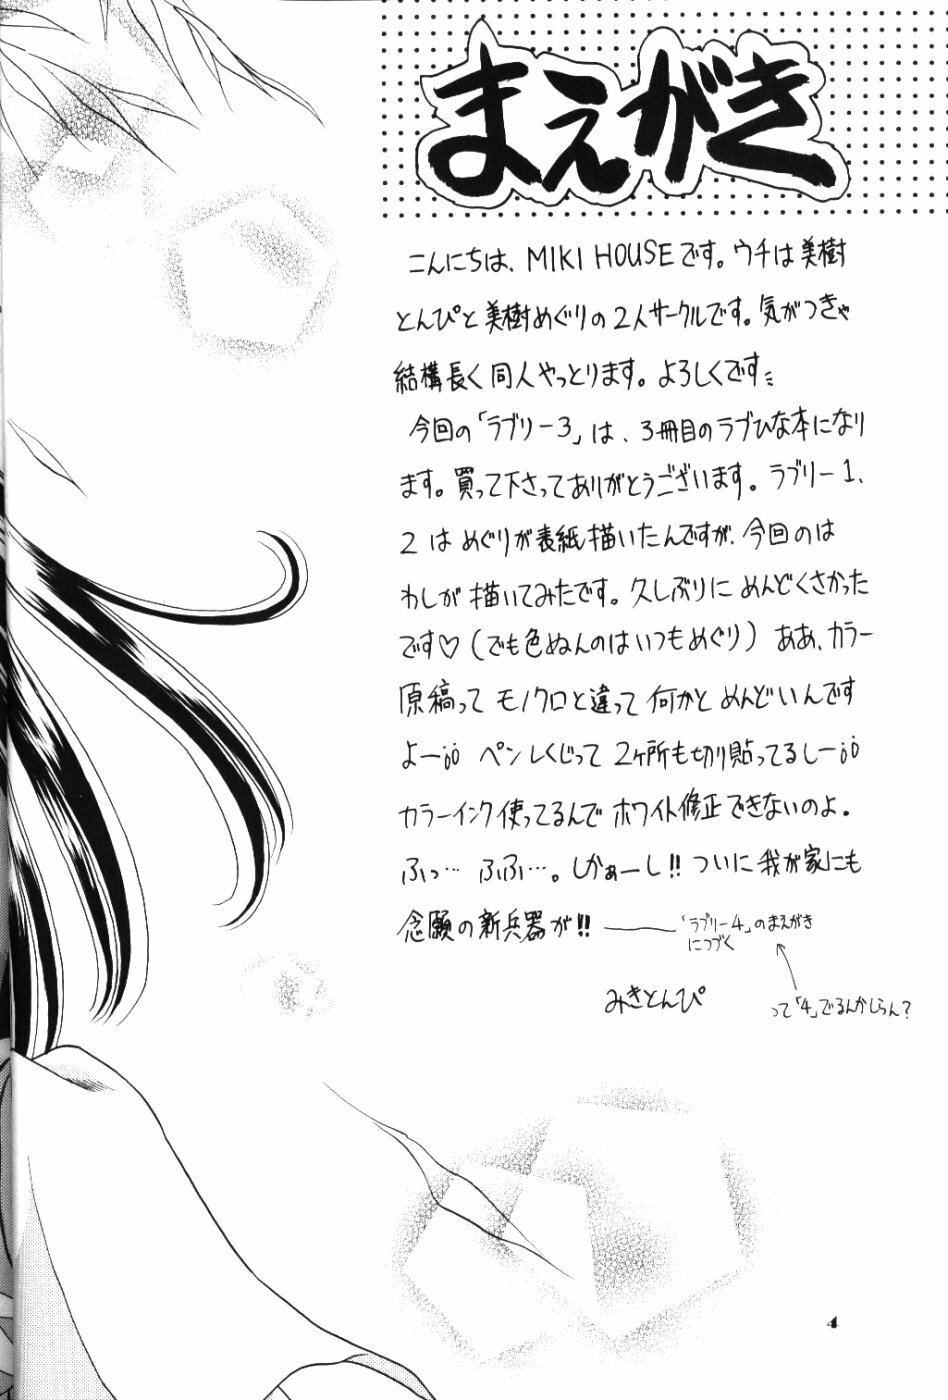 まえがき
こんにちは、MIKI HOUSEです。ウチは美樹
とんぴと美樹めぐりの2人サークルです。気がつきゃ
結構長く同人やっとります。よろしくです
今回の「ラブリー3」は、3冊目のラブひな本になり
ます。買って下さってありがとうございます。ラブリー1、
2はめぐりが表紙描いたんですが、今回のは
わしが描いてみたです。久しぶりにめんどくさかった
です♡(でも色ぬんのはいつもめぐり)ああ、カラー
原稿ってモノクロと違って何かとめんどいんです
よー ペンしくじって2ヶ所も切り貼ってるしー
カラーインク使ってるんでホワイト修正できないのよ。
ふっ…ふふ…。しかぁーし!!ついに我が家にも
念願の新兵器が!!――「ラブリー4」のまえがき
につづく
みきとんぴ
って「4」でるんかしらん?
4